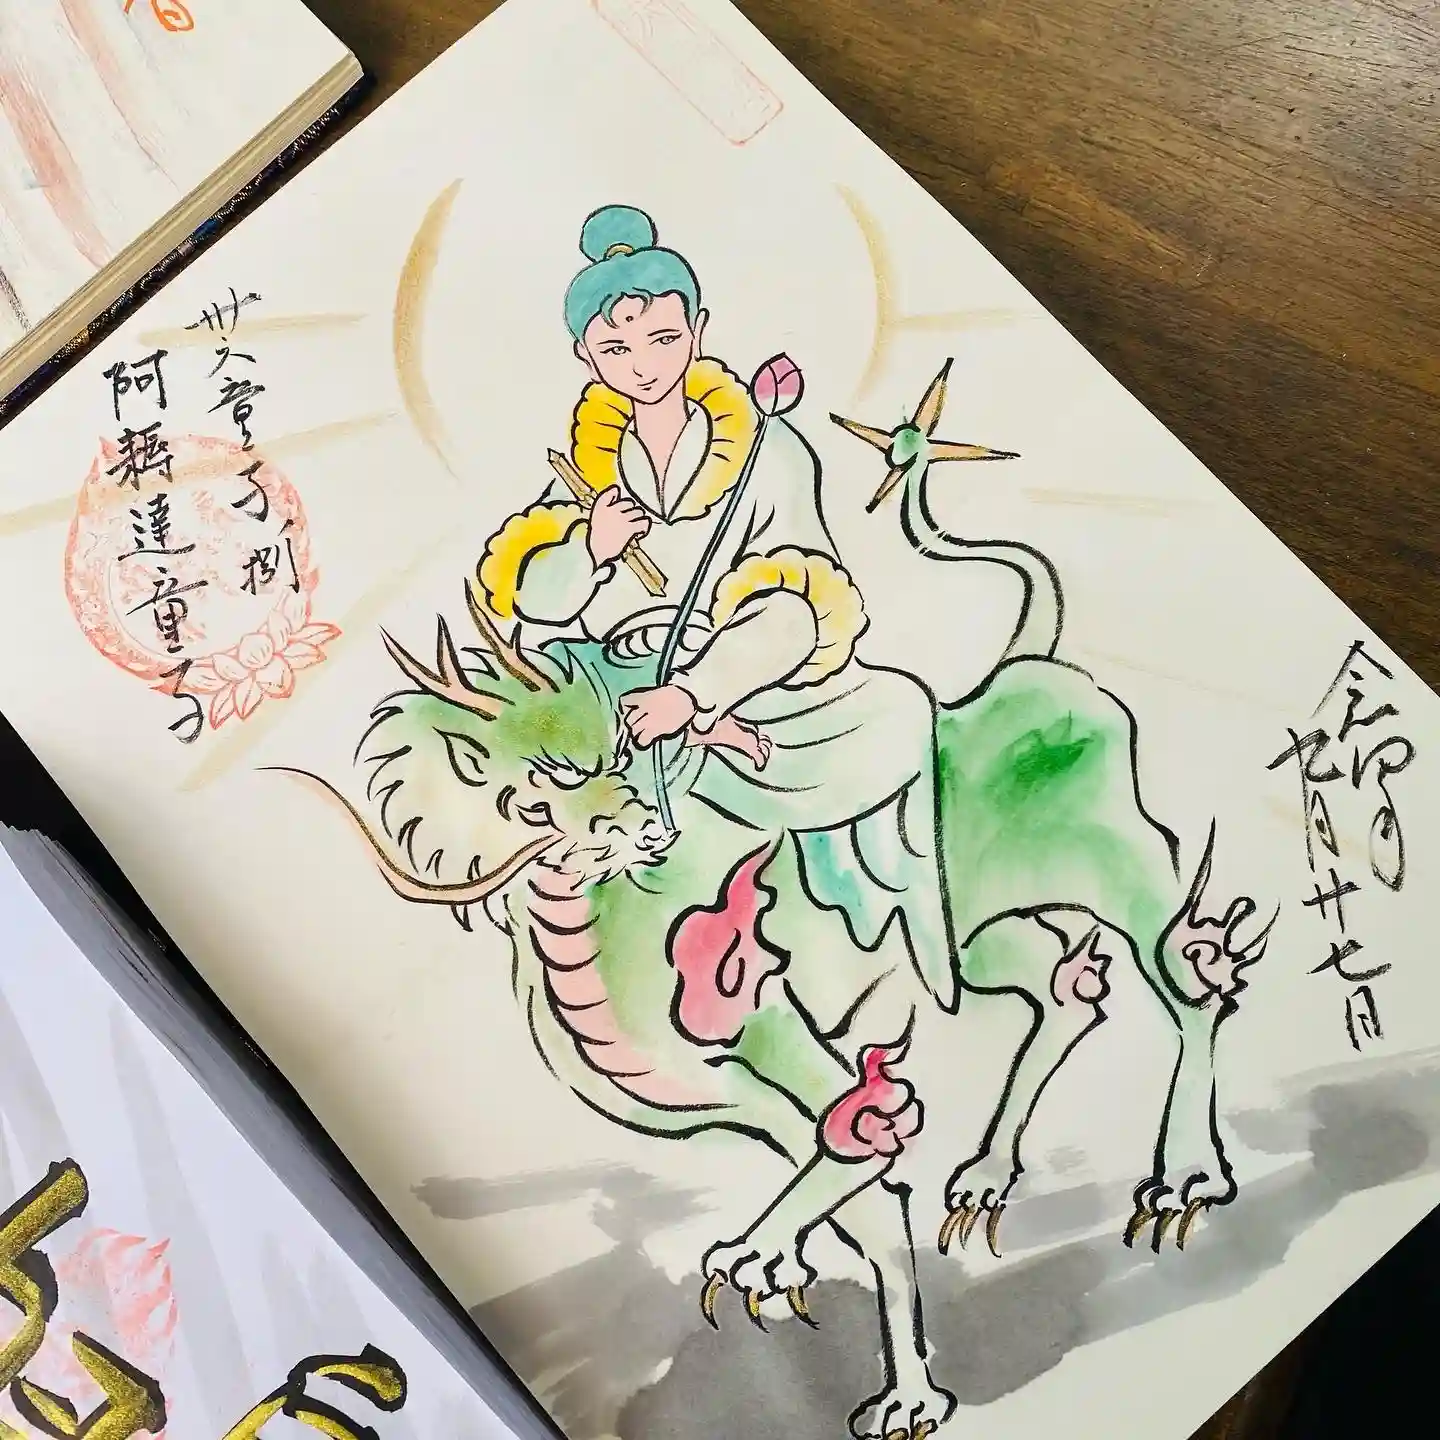 令和四年
九月廿七日
卅六童子捌
阿耨達童子